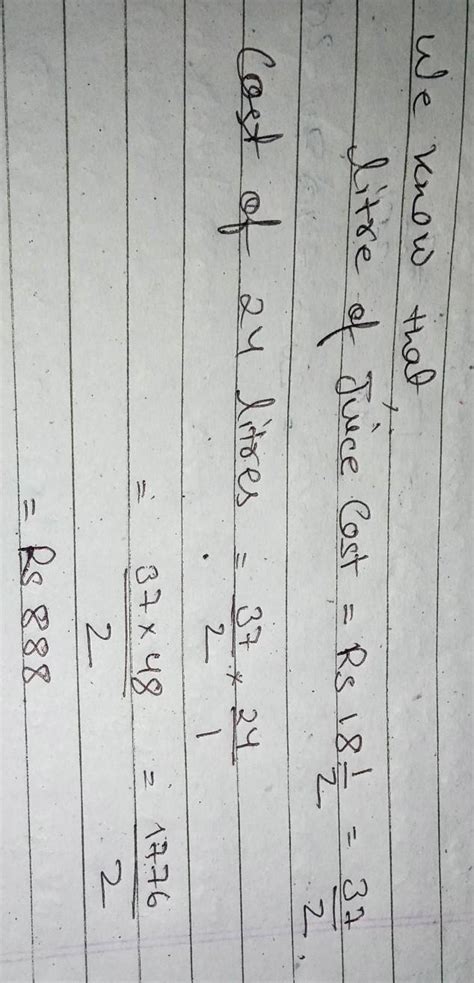 We know that
litre of Juice Cost = Rs 18 1/2 = 37/2.
Cost of 24 litres = 37/2 × 24/1
= 37 × 48/2 = 1776/2
= Rs 888